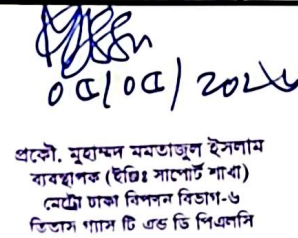 ০৫/০৫/ ২০২৬
প্রকৌ. মুহাম্মদ মমতাজুল ইসলাম
ব্যবস্থাপক (ইঞ্জিঃ সাপোর্ট শাখা)
মেট্রো ঢাকা বিপনন বিভাগ-৬
তিতাস গ্যাস টি এন্ড ডি পিএলসি